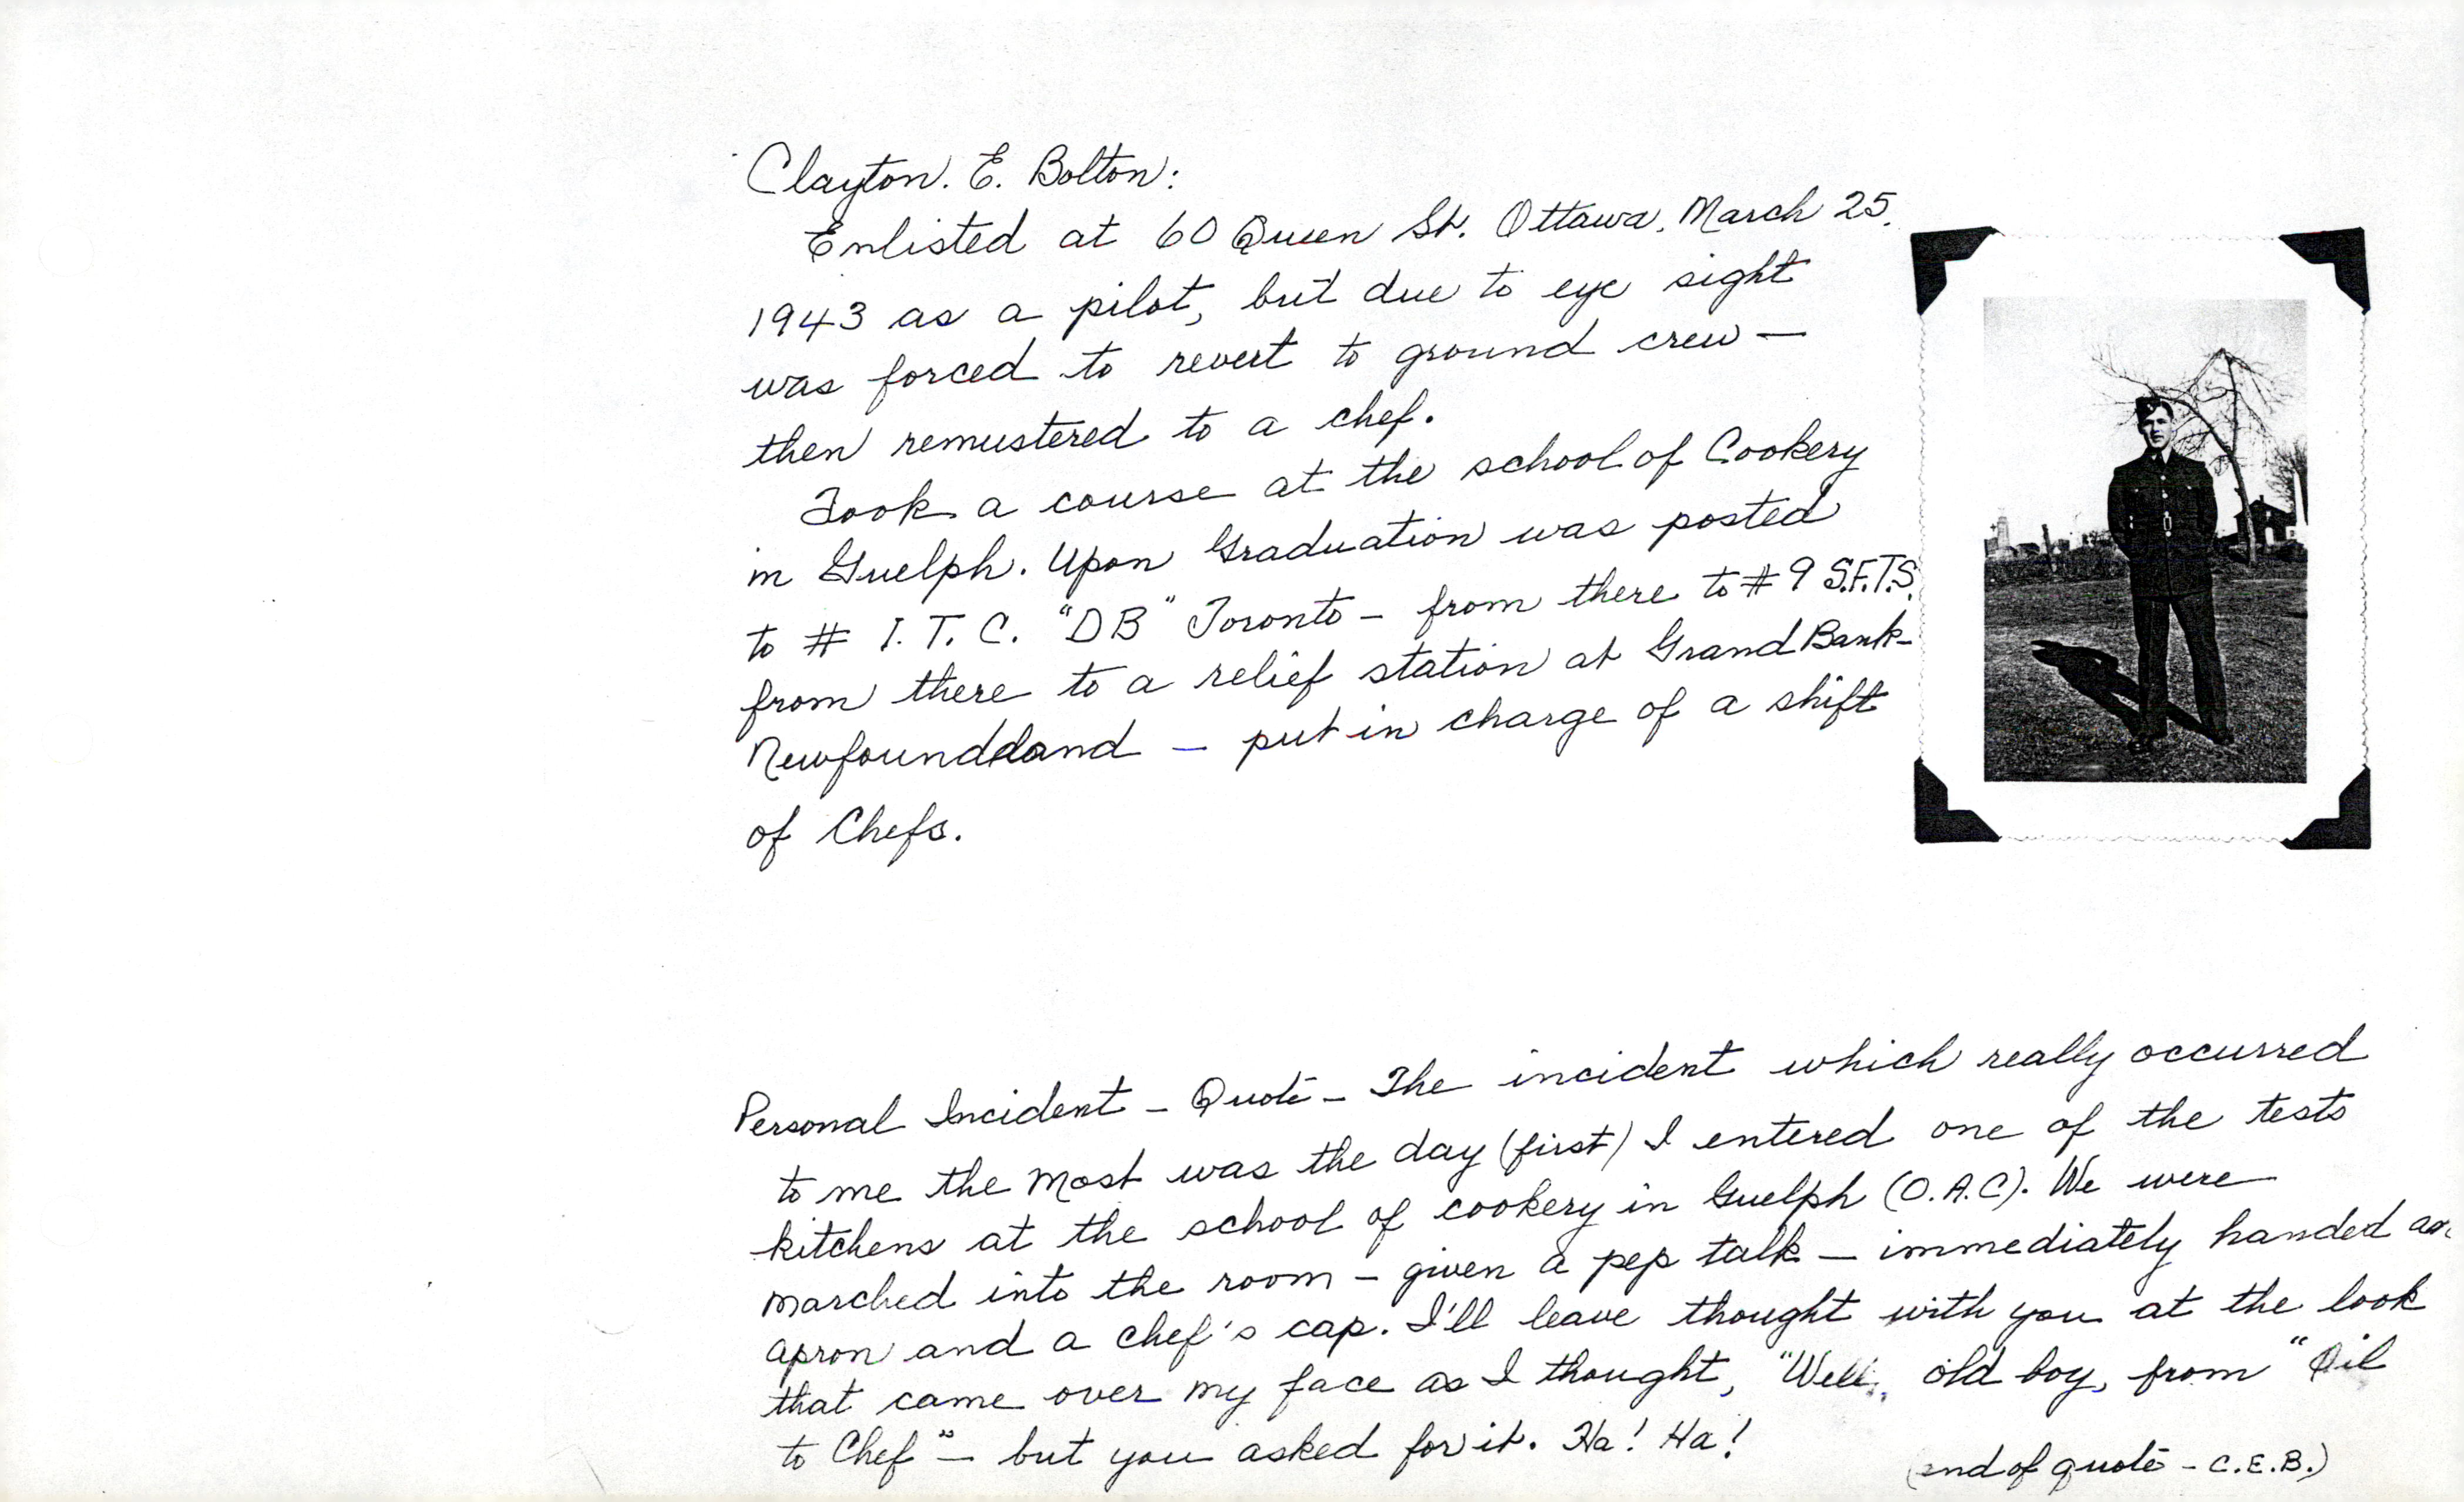 Clayton. E. Bolton:
Enlisted at 60 Queen St. Ottawa, March 25,
1943 as a pilot, but due to eye sight
was forced to revert to ground crew —
then remustered to a chef.
Took a course at the school of Cookery
in Guelph. Upon Graduation was posted
to # I. T. C. "DB" Toronto - from there to # 9 S.F.T.S.
from there to a relief station at Grand Bank-
Newfoundland - put in charge of a shift
of Chefs.
Personal Incident - Quote - The incident which really occurred
to me the most was the day (first) I entered one of the tests
kitchens at the school of cookery in Guelph (O.A.C). We were
marched into the room - given a pep talk — immediately handed an
apron and a chef's cap. I'll leave thought with you at the look
that came over my face as I thought, "Well, old boy, from "Oil
to Chef" - but you asked for it. Ha! Ha!
(end of quote - C.E.B.)